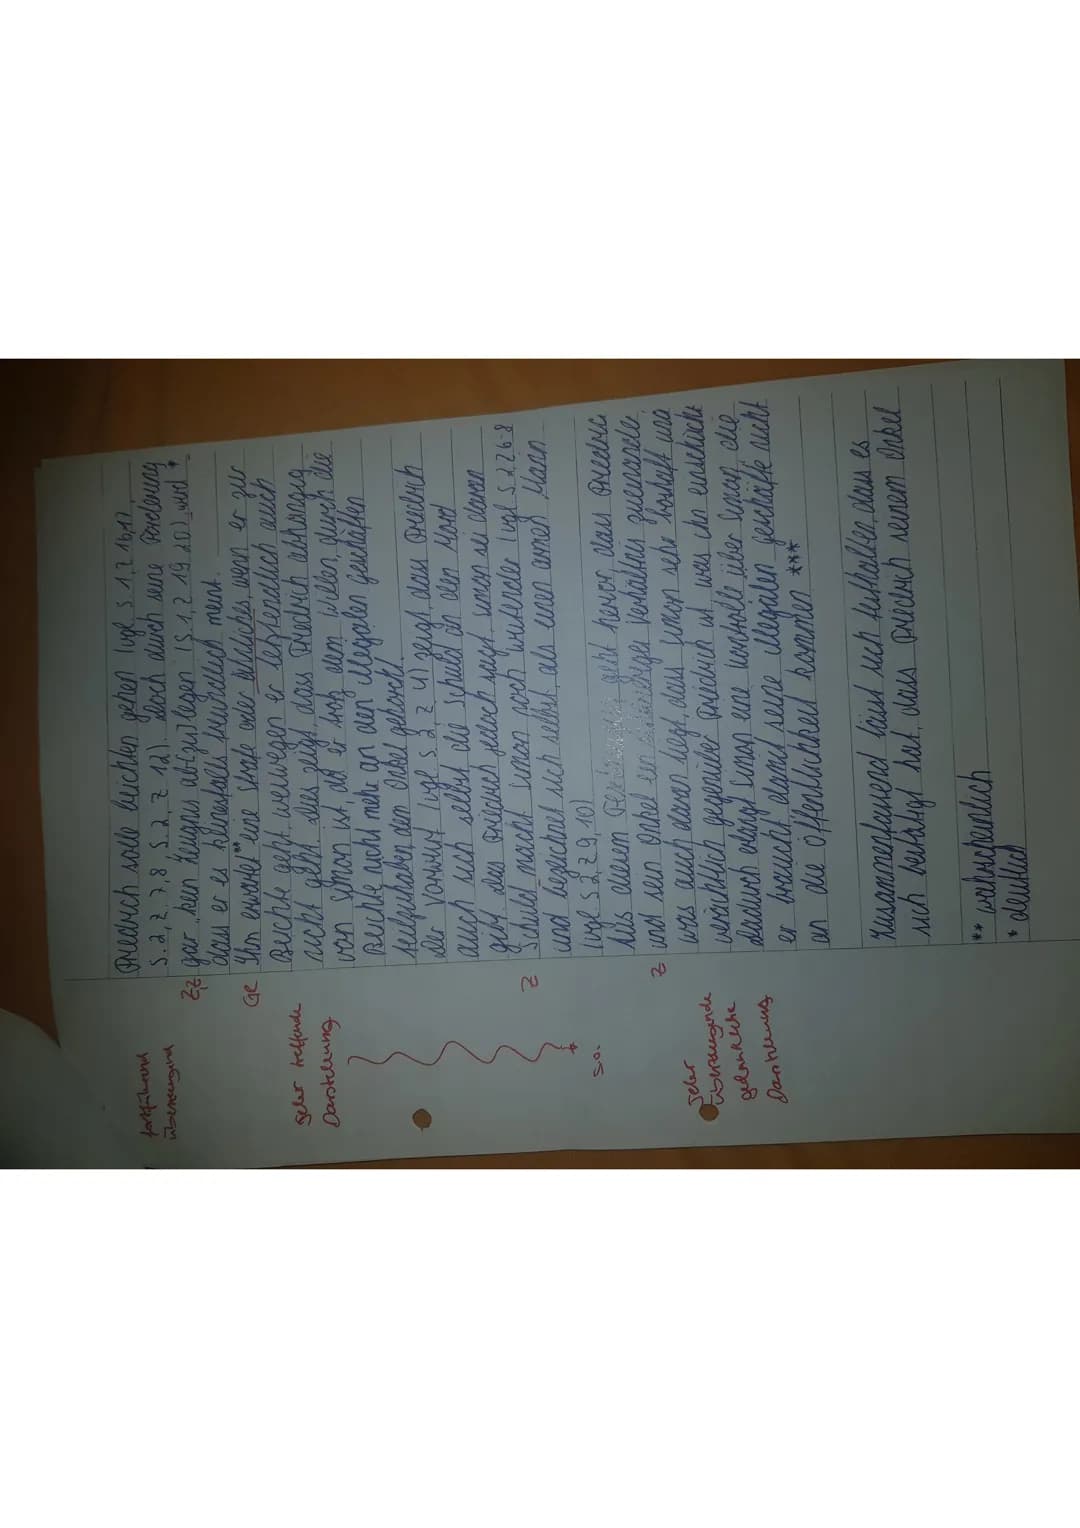 Friedrich solle beichten gehen (vgl. S.1, Z. 16,17,
S.2, Z. 7,8 S.2, Z 12). doch auch seine Forderung
gar „kein Zeugnis abzulegen (S.1, Z 19.20) wird *
dass er es keinesfalls meint.
Ihn erwartet ** eine Strafe oder änliches wenn er zur
Beichte geht, weswegen er letztendlich auch
nicht geht. dies zeigt, dass Friedrich abhängig
von Simon ist, da er trotz dem willen, durch die
Beichte nicht mehr an den illegalen geschäften
teilzuhaben, dem Onkel gehorcht.
Der Vorwurf (vgl S 2, Z 4) zeigt, dass Friedrich
auch sich selbst die Schuld an dem Mord
gibt, dass Friedrich jedoch sagt, Simon sei daran
Schuld macht Simon noch wütender (vgl S.2, Z 6-8
und bezeichnet sich selbst als einen armen Mann
(vgl S 2, Z 9,10)
Aus diesem geht hervor, dass Friedric
und sein Onkel ein Verhältnis zueinander,
was auch daran liegt, dass Simon sehr boshaft und
verächtlich gegenüber Friedrich ist was ihn einschücht
dadurch erlangt Simon eine Kontrolle über Simon, die
er braucht damit seine illegalen geschäfte nicht
an die Öffentlichkeit kommen ***
Zusammenfassend lässt sich festhalten, dass es
sich bestätigt hat, dass Friedrich seinem Onkel
** wahrscheinlich
* deutlich
fortführend
überzeugend
Z,Z
GR
sehr treffende
Darstellung
Z
*
s.o.
Z
sehr
überzeugende
gedankliche
Darstellung